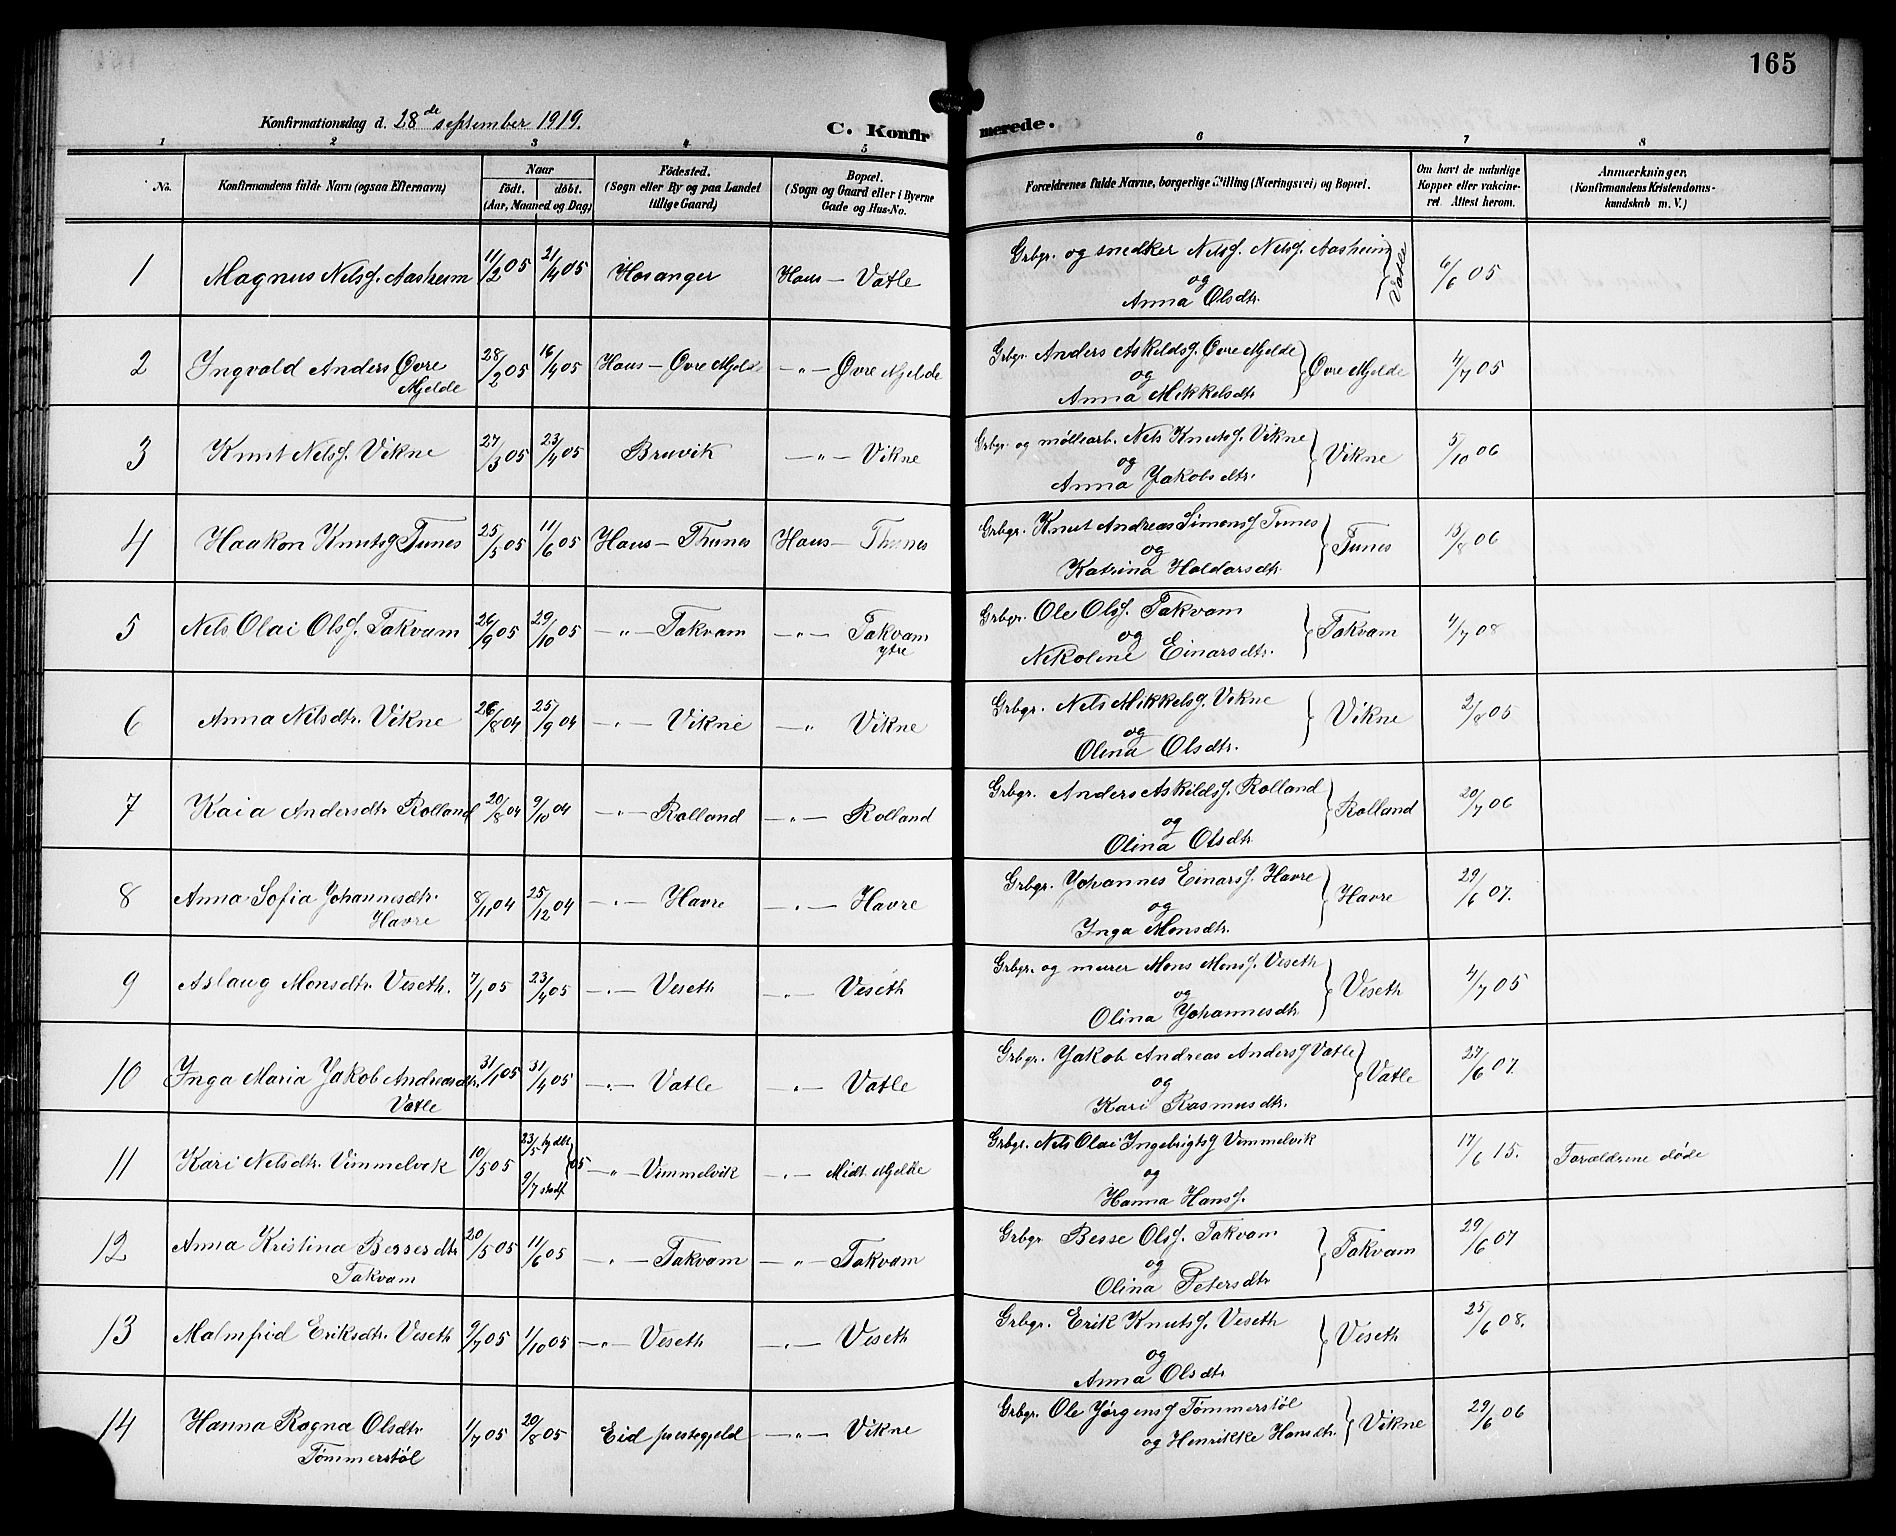 165
Konfirmationsdag d. 28de september 1919.
C. Konfirmerede.
1 2 3 4 5 6 7 8
No.
Konfirmandens fulde Navn (ogsaa Efternavn)
Naar
födt. döbt.
(Aar, Maaned og Dag)
Födested.
(Sogn eller By og paa Landet
tillige Gaard)
Bopæl.
(Sogn og Gaard eller i Byerne
Gade og Hus-No.
Forældrenes fulde Navne, borgerlige Stilling (Næringsvei) og Bopæl.
Om havt de naturlige
Kopper eller vakcine-
ret. Attest herom.
Anmærkninger.
(Konfirmandens Kristendoms-
kundskab m. V.)
1 Magnus Nelsf. Aasheim 11/2 05 21/4 05 Hosanger Haus — Vatle Grbgr. og snedker Nelsf. Nelsf. Aasheim
og
Anna Olsdtr. } Vatle 6/6 05
2 Ingvald Anders Øvre
Mjelde 28/2 05 16/4 05 Haus — Øvre Mjelde —"— Øvre Mjelde Grbgr. Anders Askildsf. Øvre Mjelde
og
Anna Mikkelsdtr } Øvre Mjelde 4/7 05
3 Knut Nelsf. Vikne 27/3 05 23/4 05 Bruvik —"— Vikne Grbgr. og møllearb. Nels Knutsf. Vikne
og
Anna Jakobsdtr. } Vikne 5/10 06
4 Haakon Knutsf Tunes 25/5 05 11/6 05 Haus — Thunes Haus — Thunes Grbgr. Knut Andreas Simonsf Tunes
og
Katrina Haldorsdtr. } Tunes 15/8 06
5 Nels Olai Olsf. Takvam 26/9 05 29/10 05 —"— Takvam —"— Takvam
ytre Grbgr. Ole Olsf. Takvam
og
Nikoline Einarsdtr. } Takvam 4/7 08
6 Anna Nelsdtr. Vikne 26/8 04 25/9 04 —"— Vikne —"— Vikne Grbgr. Nels Mikkelsf. Vikne
og
Olina Olsdtr. } Vikne 2/8 05
7 Kaia Andersdtr Rolland 20/8 04 9/10 04 —"— Rolland —"— Rolland Grbgr. Anders Askildsf. Rolland
og
Olina Olsdtr } Rolland 20/7 06
8 Anna Sofia Johannesdtr.
Havre 8/11 04 25/12 04 —"— Havre —"— Havre Grbgr. Johannes Einarsf. Havre
og
Inga Monsdtr. } Havre 29/6 07.
9 Aslaug Monsdtr. Veseth. 7/1 05 23/4 05 —"— Veseth —"— Veseth Grbgr. og murer Mons Monsf. Veseth
og
Olina Johannesdtr } Veseth 4/7 05
10 Inga Maria Jakob Andreasdtr.
Vatle 31/1 05 31/4 05 —"— Vatle —"— Vatle Grbgr. Jakob Andreas Andersf Vatle
og
Kari Rasmusdtr. } Vatle 27/6 07.
11 Kari Nelsdtr. Vimmelvik 10/5 05 23/5 hjdbt
9/7 stadf } 05 —"— Vimmelvik —"— Midt Mjelde Grbgr. Nels Olai Ingebrigtsf Vimmelvik
og
Hanna Hansf. 17/6 15. Forældrene døde
12 Anna Kristina Bessesdtr
Takvam 20/5 05 11/6 05 —"— Takvam —"— Takvam Grbgr Besse Olsf. Takvam
og
Olina Petersdtr } Takvam 29/6 07
13 Malmfrid Eriksdtr. Veseth 9/7 05 1/10 05 —"— Veseth —"— Veseth Grbgr. Erik Knutsf. Veseth
og
Anna Olsdtr } Veseth 25/6 08.
14 Hanna Ragna Olsdtr
Tømmerstøl 1/7 05 20/8 05 Eid prestegjeld —"— Vikne Grbgr. Ole Jørgensf Tømmerstøl
og Henrikke Hansdtr. } Vikne 29/6 06